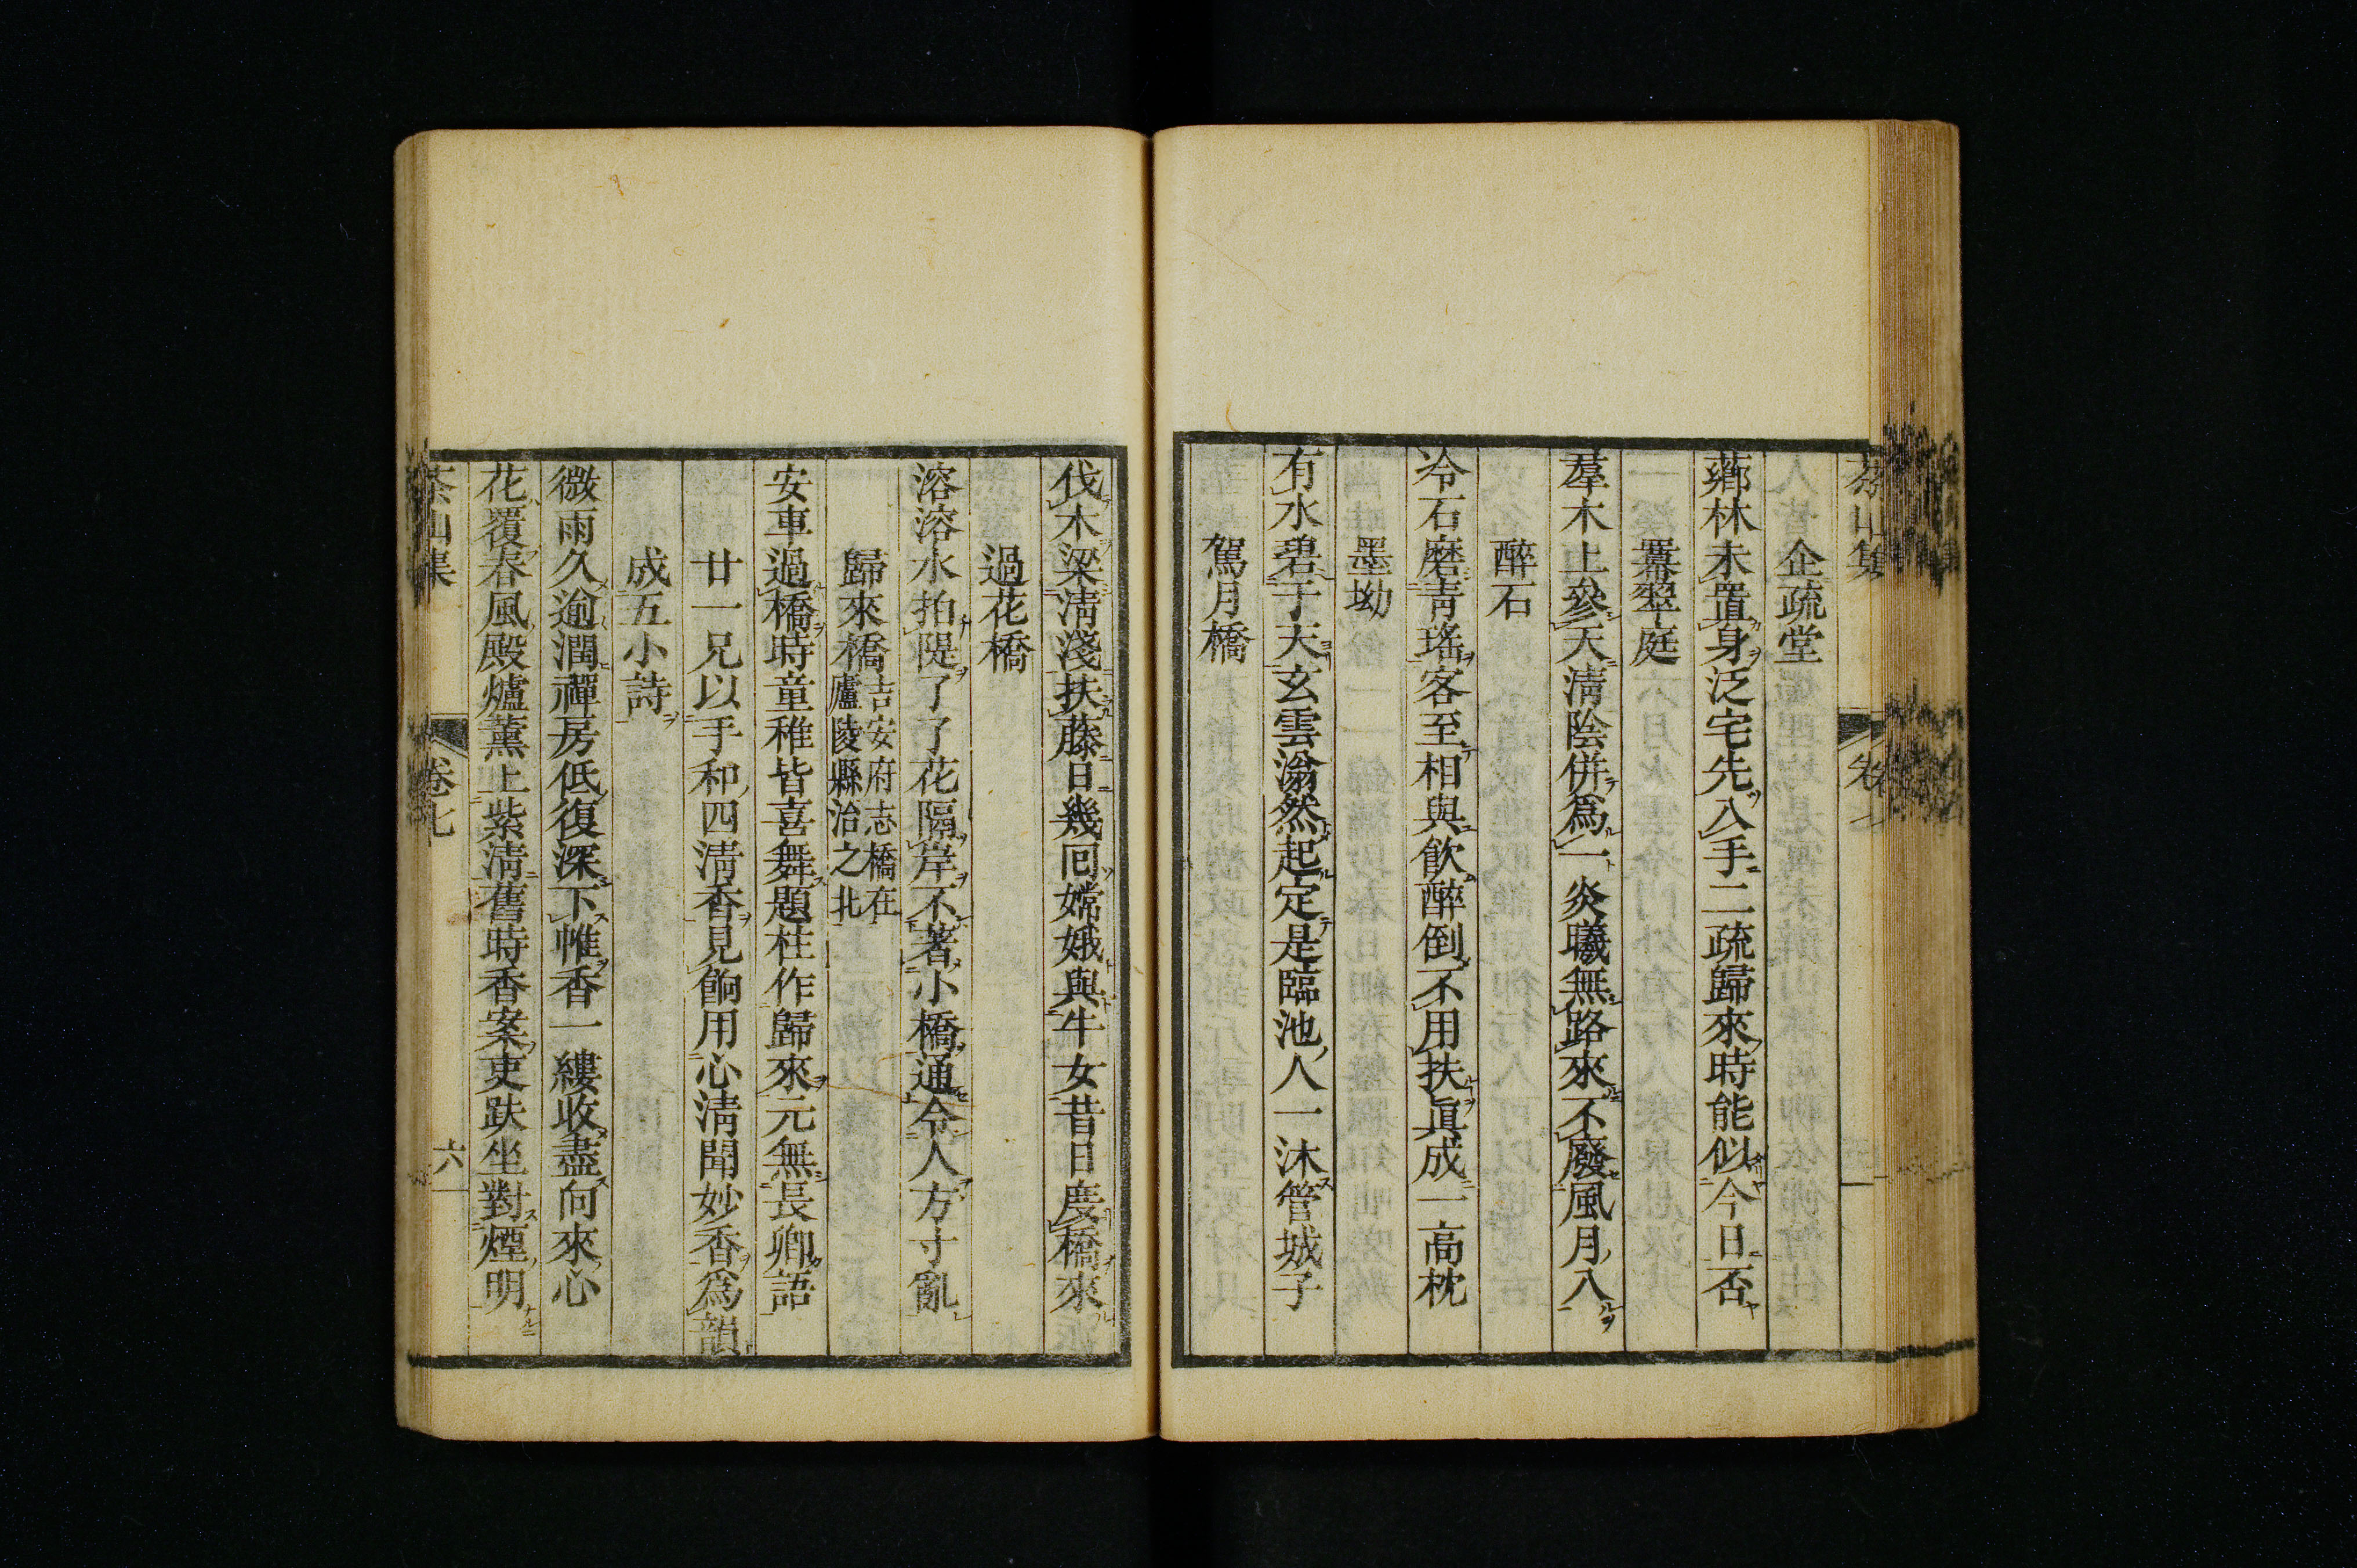 茶山集 卷七
企疏堂
薌林未置身泛宅先入手二疏歸來時能似今日否
羃翠庭
羣木上參天淸陰併爲一炎曦無路來不廢風月入
醉石
冷石磨靑瑤客至相與飮醉倒不用扶眞成一高枕
墨坳
有水碧于天玄雲滃然起定是臨池人一沐管城子
駕月橋
伐木梁淸淺扶藤日幾囘嫦娥與牛女昔日度橋來
過花橋
溶溶水拍隄了了花隔岸不著小橋通令人方寸亂
歸來橋吉安府志橋在廬陵縣治之北
安車過橋時童稚皆喜舞題柱作歸來元無長卿語
廿一兄以手和四淸香見餉用心淸聞妙香爲韻
成五小詩
微雨久逾潤禪房低復深下帷香一縷收盡向來心
花覆春風殿爐薰上紫淸舊時香案吏趺坐對煙明
茶山集 卷七 六